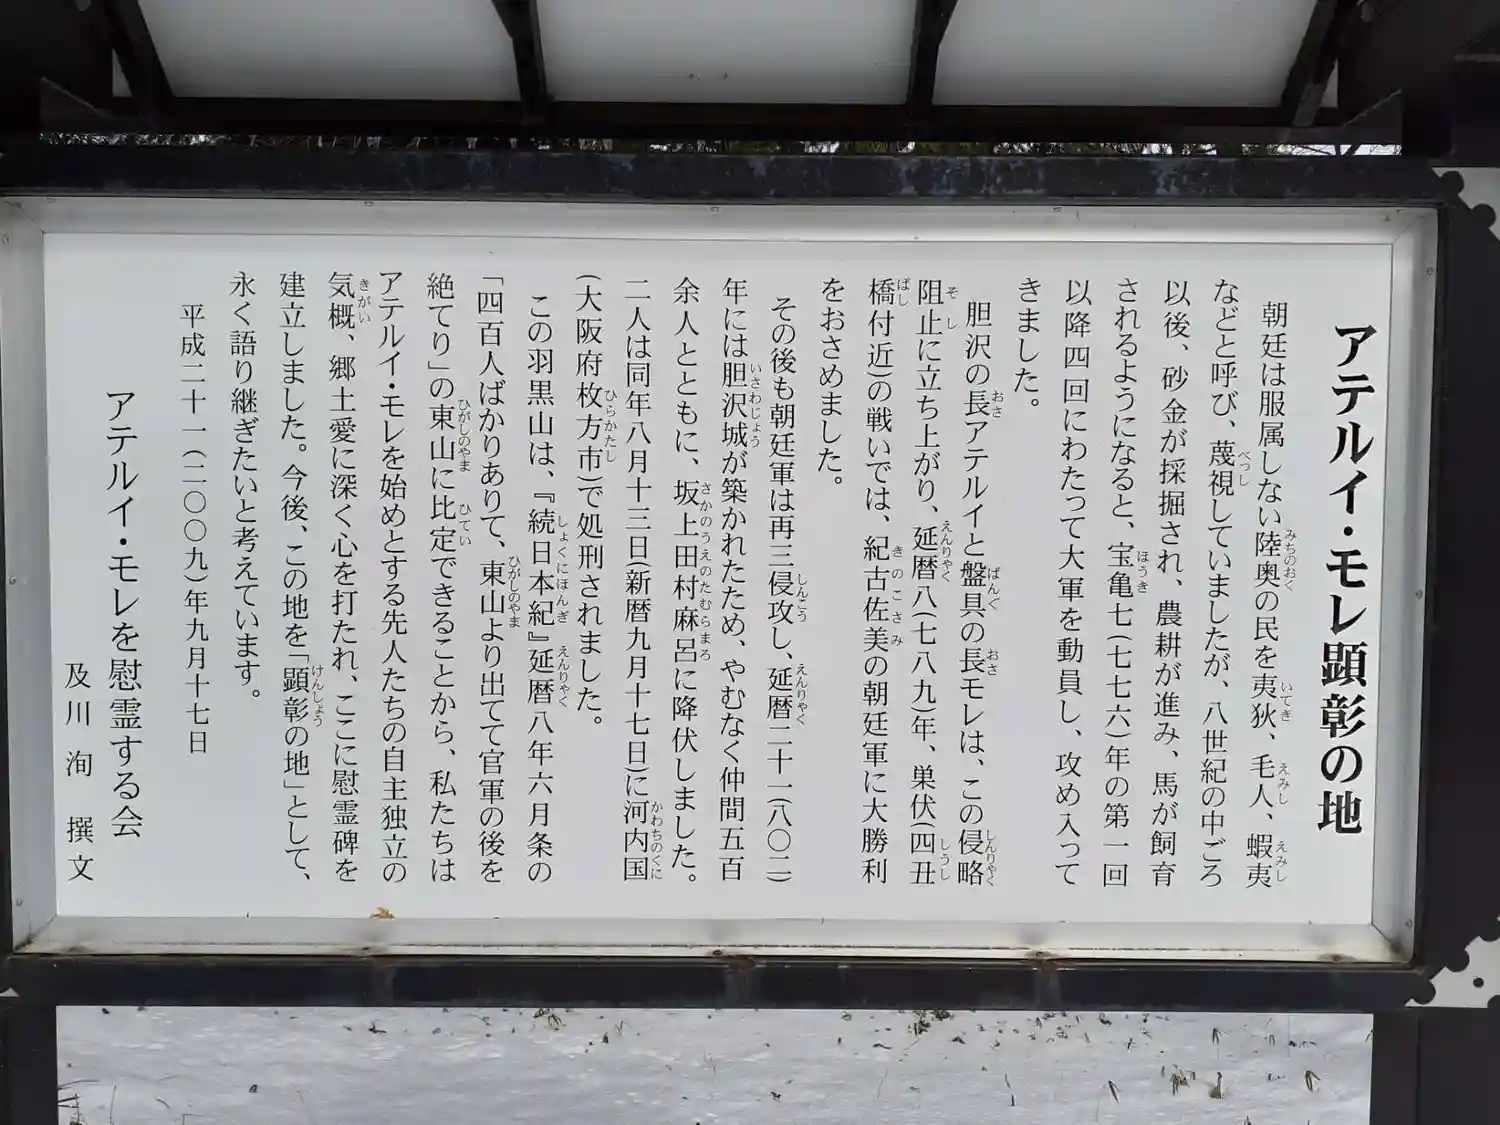 アテルイ・モレ顕彰の地
朝廷は服属しない陸奥の民を夷狄、毛人、蝦夷
などと呼び、蔑視していましたが、八世紀の中ごろ
以後、砂金が採掘され、農耕が進み、馬が飼育
されるようになると、宝亀七(七七六)年の第一回
以降四回にわたって大軍を動員し、攻め入って
きました。
胆沢の長アテルイと盤具の長モレは、この侵略
阻止に立ち上がり、延暦八(七八九)年、巣伏(四丑
橋付近)の戦いでは、紀古佐美の朝廷軍に大勝利
をおさめました。
その後も朝廷軍は再三侵攻し、延暦二十一(八〇二)
年には胆沢城が築かれたため、やむなく仲間五百
余人とともに、坂上田村麻呂に降伏しました。
二人は同年八月十三日(新暦九月十七日)に河内国
(大阪府枚方市)で処刑されました。
この羽黒山は、『続日本紀』延暦八年六月条の
「四百人ばかりありて、東山より出てて官軍の後を
絶てり」の東山に比定できることから、私たちは
アテルイ・モレを始めとする先人たちの自主独立の
気概、郷土愛に深く心を打たれ、ここに慰霊碑を
建立しました。今後、この地を「顕彰の地」として、
永く語り継ぎたいと考えています。
平成二十一(二〇〇九)年九月十七日
アテルイ・モレを慰霊する会
及川 洵 撰文